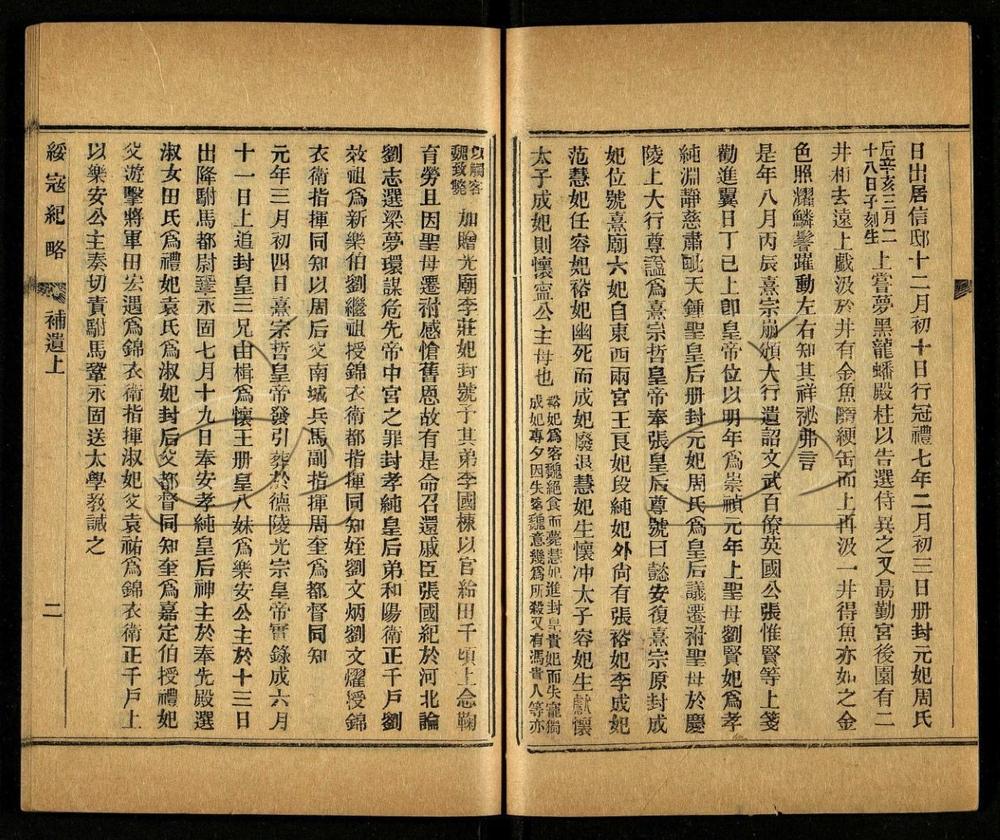 日出居信邸十二月初十日行冠禮七年二月初三日册封元妃周氏
后辛亥三月二十八日子刻生上嘗夢黑龍蟠殿柱以告選侍異之又勗勤宮後園有二
井相去遠上戲汲於井有金魚隨綆缶而上再汲一井得魚亦如之金
色照耀鱗鬐躍動左右知其祥祕弗言
是年八月丙辰熹宗崩頒大行遺詔文武百僚英國公張惟賢等上箋
勸進翼日丁已上即皇帝位以明年爲崇禎元年上聖母劉賢妃爲孝
純淵靜慈肅毗天鍾聖皇后册封元妃周氏爲皇后議遷祔聖母於慶
陵上大行尊謚爲熹宗哲皇帝奉張皇后尊號曰懿安復熹宗原封成
妃位號熹廟六妃自東西兩宮王良妃段純妃外尚有張裕妃李成妃
范慧妃任容妃裕妃幽死而成妃廢退慧妃生懷冲太子容妃生獻懷
太子成妃則懷寍公主母也裕妃爲客魏絕食而薨慧妃進封皇貴妃而失寵獨成妃專夕因失客魏意幾爲所殺又有馮貴人等亦
以觸客魏致斃加贈光廟李莊妃封號予其弟李國棟以官給田千頃上念鞠
育勞且因聖母遷祔感愴舊恩故有是命召還戚臣張國紀於河北論
劉志選梁夢環謀危先帝中宮之罪封孝純皇后弟和陽衛正千戶劉
效祖爲新樂伯劉繼祖授錦衣衛都指揮同知姪劉文炳劉文燿授錦
衣衛指揮同知以周后父南城兵馬副指揮周奎爲都督同知
元年三月初四日熹宗哲皇帝發引葬於德陵光宗皇帝實錄成六月
十一日上追封皇三兄由楫爲懷王册皇八妹爲樂安公主於十三日
出降駙馬都尉鞏永固七月十九日奉安孝純皇后神主於奉先殿選
淑女田氏爲禮妃袁氏爲淑妃封后父都督同知奎爲嘉定伯授禮妃
父遊擊將軍田宏遇爲錦衣衛指揮淑妃父袁祐爲錦衣衛正千戶上
以樂安公主奏切責駙馬鞏永固送太學敎誡之
綏寇紀略 補遺上 二